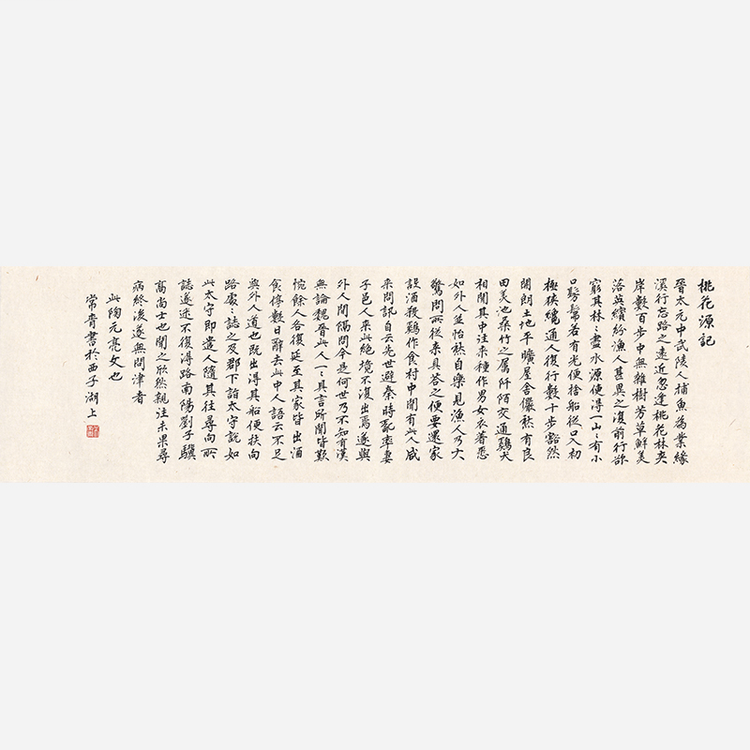 桃花源記
晉太元中武陵人捕魚為業緣
溪行忘路之遠近忽逢桃花林夾
岸數百步中無雜樹芳草鮮美
落英繽紛漁人甚異之復前行欲
窮其林〻盡水源便得一山〻有小
口髣髴若有光便捨船從口入初
極狹纔通人復行數十步豁然
開朗土地平曠屋舍儼然有良
田美池桑竹之屬阡陌交通鷄犬
相聞其中往來種作男女衣著悉
如外人並怡然自樂見漁人乃大
驚問所從來具答之便要還家
設酒殺鷄作食村中聞有此人咸
來問訊自云先世避秦時亂率妻
子邑人來此絕境不復出焉遂與
外人間隔問今是何世乃不知有漢
無論魏晉此人一〻具言所聞皆歎
惋餘人各復延至其家皆出酒
食停數日辭去此中人語云不足
與外人道也既出得其船便扶向
路處〻誌之及郡下詣太守說如
此太守即遣人隨其往尋向所
誌遂迷不復得路南陽劉子驥
高尚士也聞之欣然親往未果尋
病終後遂無問津者
此陶元亮文也
常青書於西子湖上